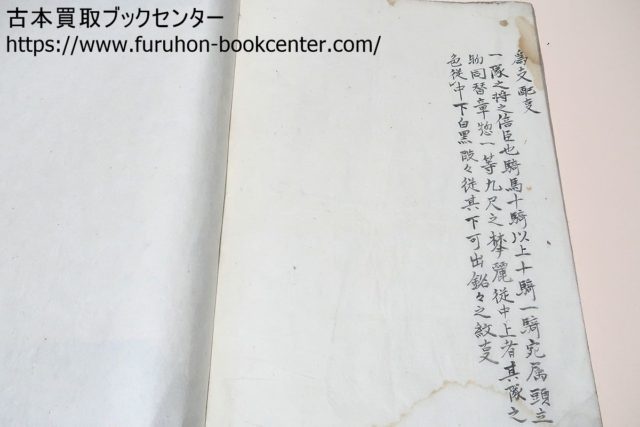 古本買取ブックセンター
https://www.furuhon-bookcenter.com/
為支配支
一隊之将之倍臣也騎馬十騎以上十騎一騎宛属頭立
物同督章惣一等九尺之梺麗従中上者其隊之
色従中下白黒段々従其下可出銘々之紋支